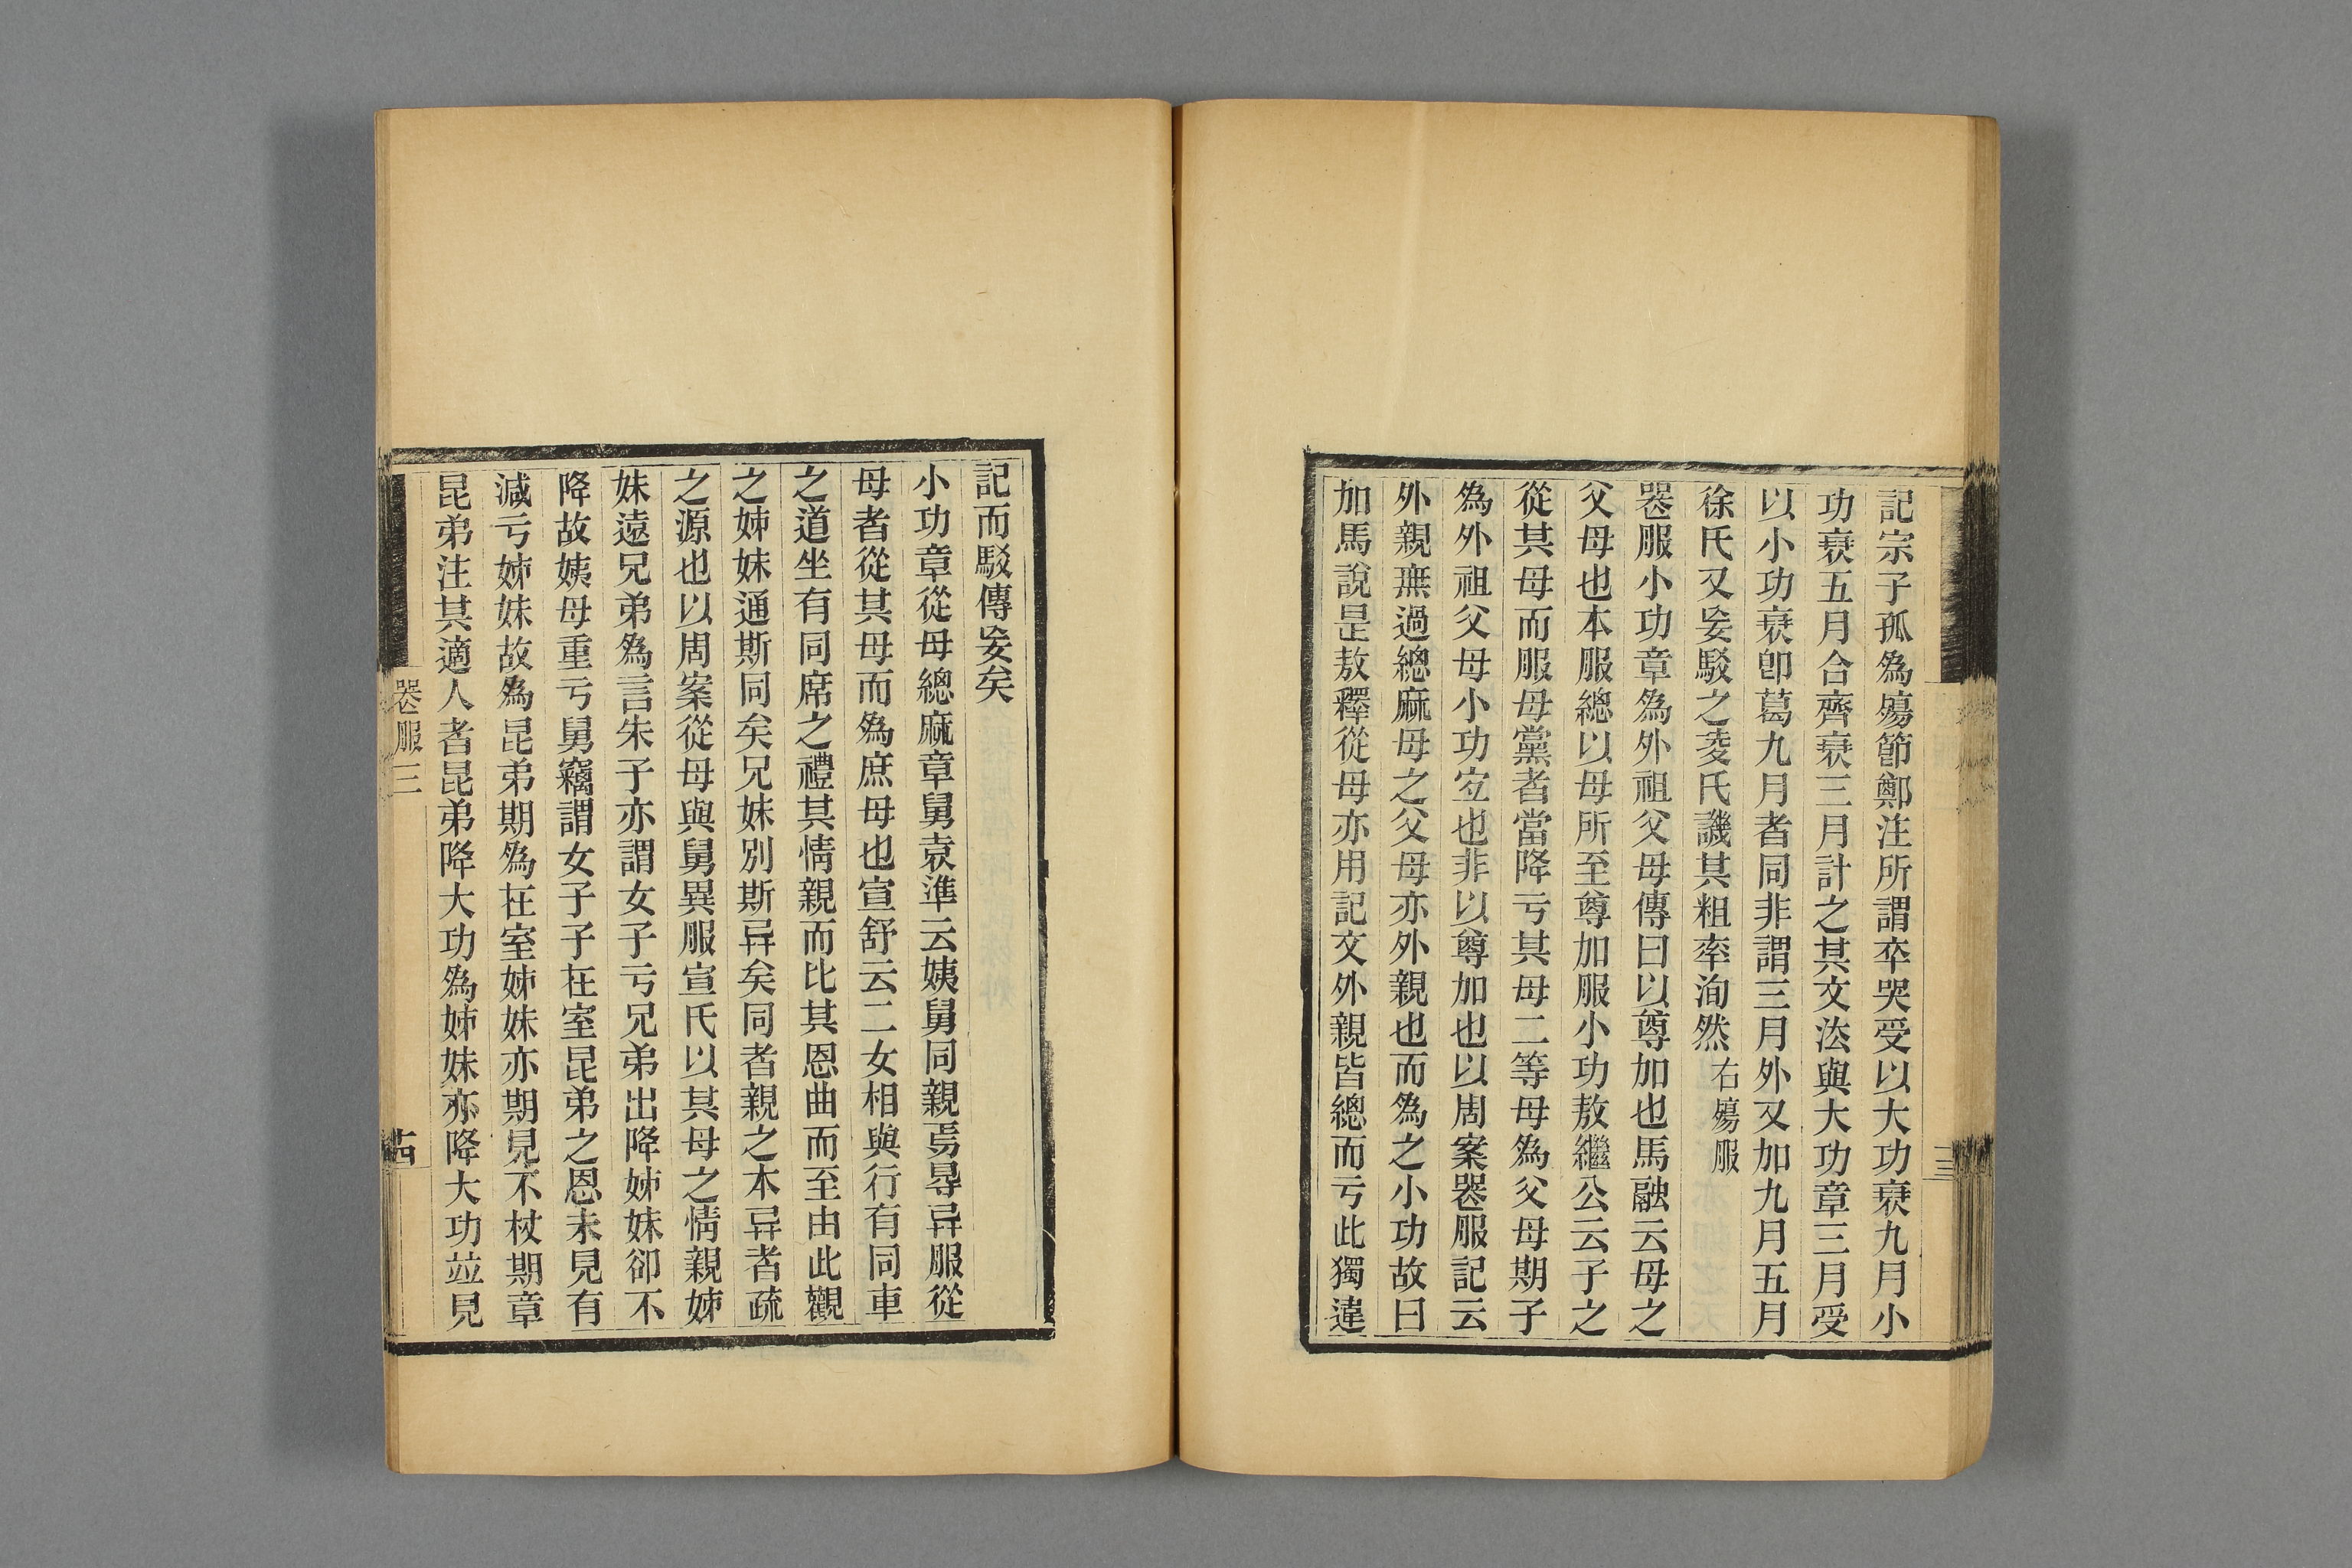 記宗子孤爲殤節鄭注所謂卒哭受以大功衰九月小
功衰五月合齊衰三月計之其文法與大功章三月受
以小功衰卽葛九月者同非謂三月外又加九月五月
徐氏又妄駁之夌氏譏其粗率洵然 右殤服
喪服小功章爲外祖父母傳曰以尊加也馬融云母之
父母也本服緦以母所至尊加服小功敖繼公云子之
從其母而服母黨者當降亏其母二等母爲父母期子
爲外祖父母小功宜也非以尊加也以周案喪服記云
外親無過緦麻母之父母亦外親也而爲之小功故曰
加馬說是敖釋從母亦用記文外親皆緦而亏此獨違
記而駁傳妄矣
小功章從母緦麻章舅袁準云姨舅同親焉㝵异服從
母者從其母而爲庶母也宣舒云二女相與行有同車
之道坐有同席之禮其情親而比其恩曲而至由此觀
之姊妹通斯同矣兄妹別斯异矣同者親之本异者疏
之源也以周案從母與舅異服宣氏以其母之情親姊
妹遠兄弟爲言朱子亦謂女子亏兄弟出降姊妹卻不
降故姨母重亏舅竊謂女子子在室昆弟之恩未見有
減亏姊妹故爲昆弟期爲在室姊妹亦期見不杖期章
昆弟注其適人者昆弟降大功爲姊妹亦降大功竝見
喪服三
十四